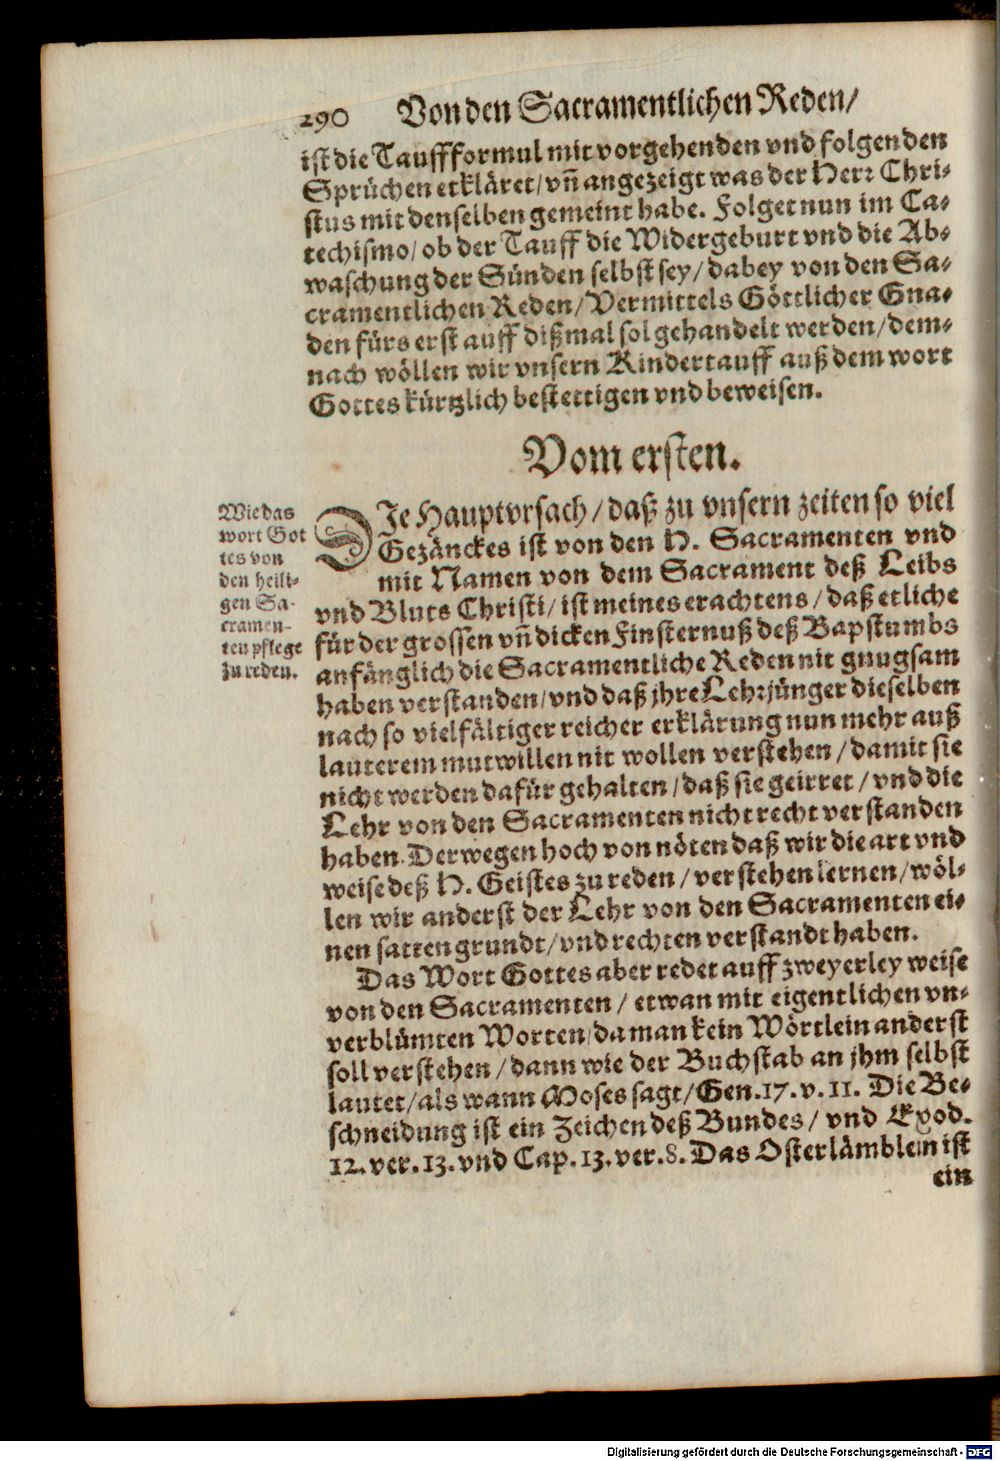 290 Von den Sacramentlichen Reden/
ist die Taufformul mit vorgehenden vnd folgenden
Sprüchen erkläret/ vñ angezeigt was der Herr Chri-
stus mit denselben gemeint habe. Folget nun im Ca-
techismo/ ob der Tauff die Widergeburt vnd die Ab-
waschung der Sünden selbst sey/ dabey von den Sa-
cramentlichen Reden/ Vermittels Göttlicher Gna-
den fürs erst auff dißmal sol gehandelt werden/ dem-
nach wöllen wir vnsern Kindertauff auß dem wort
Gottes kürtzlich bestettigen vnd beweisen.
Vom ersten.
Wie das
wort Got
tes von
den heili-
gen Sa-
cramen-
ten pflege
zu reden.
DIe Hauptvrsach/ daß zu vnsern zeiten so viel
Gezänckes ist von den H. Sacramenten vnd
mit Namen von dem Sacrament deß Leibs
vnd Bluts Christi/ ist meines erachtens/ daß etliche
für der grossen vñ dicken Finsternuß deß Bapstumbs
anfänglich die Sacramentliche Reden nit gnugsam
haben verstanden/ vnd daß jhre Lehrjünger dieselben
nach so vielfältiger reicher erklärung nun mehr auß
lauterem mutwillen nit wollen verstehen/ damit sie
nicht werden dafür gehalten/ daß sie geirret/ vnd die
Lehr von den Sacramenten nicht recht verstanden
haben. Derwegen hoch von nöten daß wir die art vnd
weise deß H. Geistes zu reden/ verstehen lernen/ wöl-
len wir anderst der Lehr von den Sacramenten ei-
nen satten grundt/ vnd rechten verstandt haben.
Das Wort Gottes aber redet auff zweyerley weise
von den Sacramenten/ etwan mit eigentlichen vn-
verblümten Worten/ da man kein Wörtlein anderst
soll verstehen/ dann wie der Buchstab an jhm selbst
lautet/ als wann Moses sagt/ Gen. 17. v. 11. Die Be-
schneidung ist ein Zeichen deß Bundes/ vnd Exod.
12. ver. 13. vnd Cap. 13. ver. 8. Das Osterlämblein ist
ein
Digitalisierung gefördert durch die Deutsche Forschungsgemeinschaft - DFG